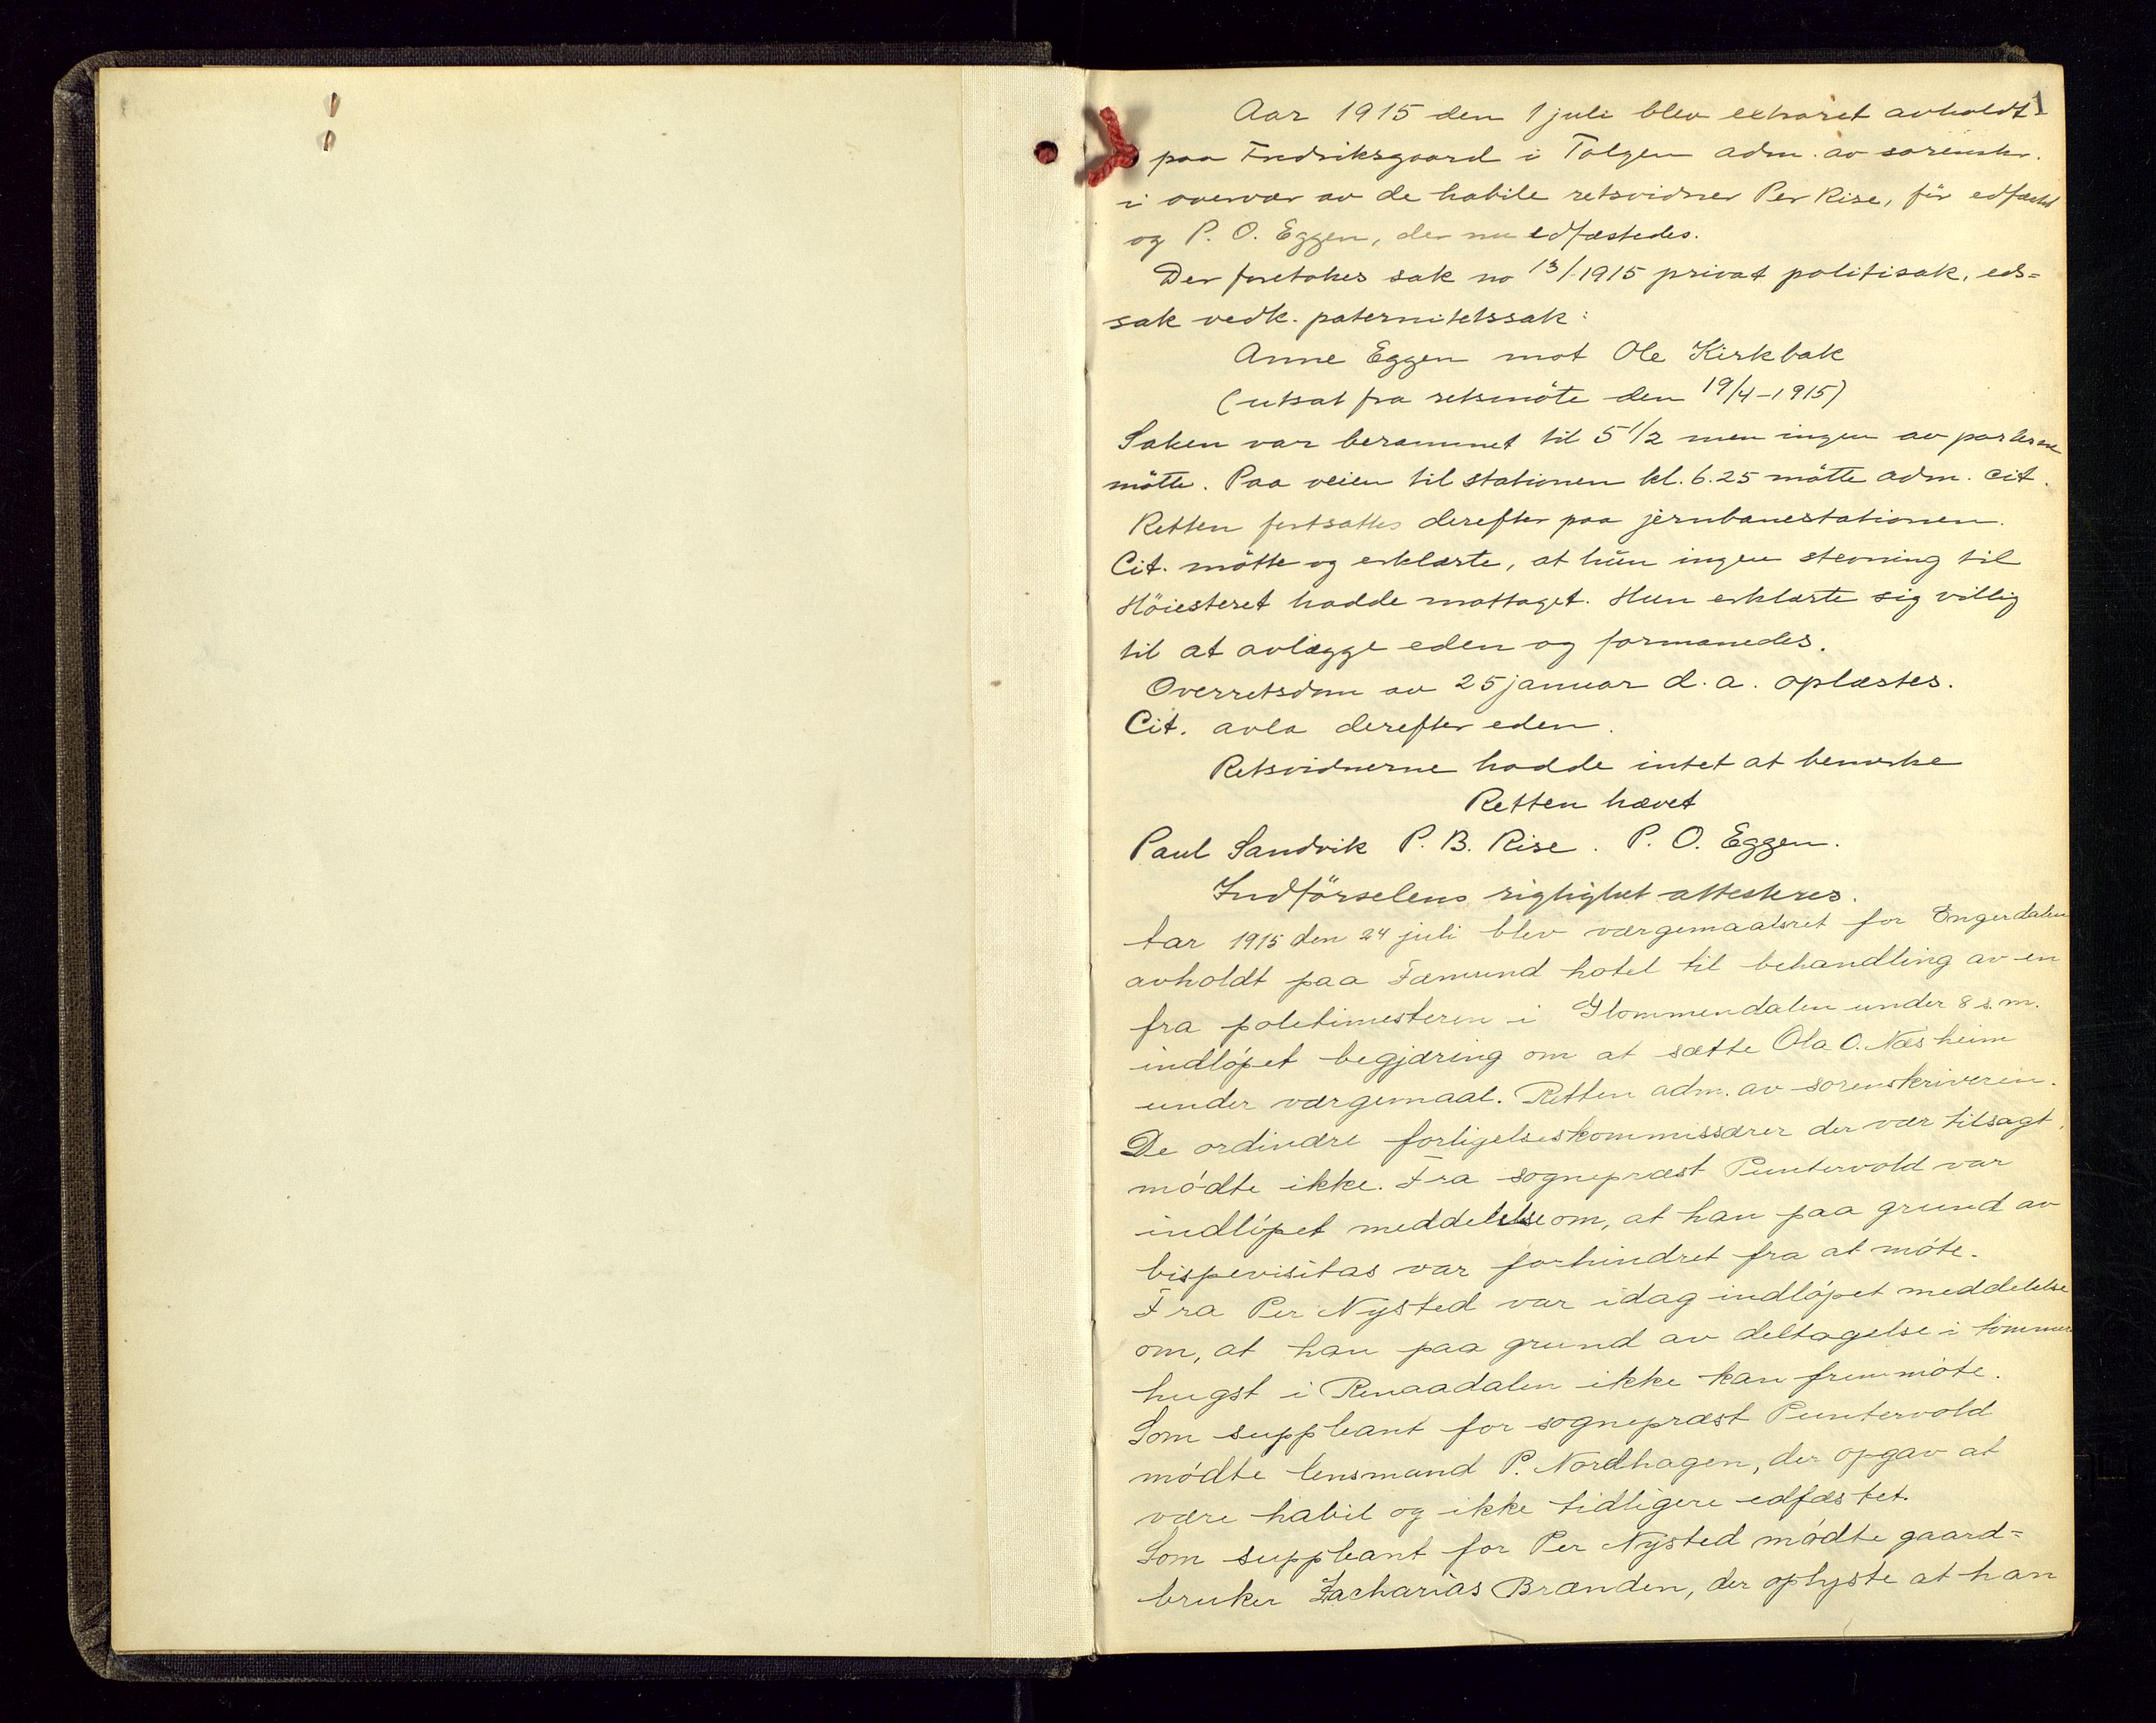 1
Aar 1915 den 1 juli blev extraret avholdt
paa Fredriksgaard i Tolgen adm. av sorenskr.
i overvær av de habile retsvidner Per Rise, før edfæstet
og P. O. Eggen, der nu edfæstedes.
Der foretokes sak no 13/1915 privat politisak, eds-
sak vedk. paternitetssak:
Anne Eggen mot Ole Kirkbak
(utsat fra retsmöte den 19/4-1915)
Saken var berammet til 5 1/2 men ingen av parterne
mötte. Paa veien til stationen kl. 6.25 mötte adm. cit.
Retten fortsattes derefter paa jernbanestationen.
Cit. mötte og erklærte, at hun ingen stevning til
Höiesteret hadde mottaget. Hun erklærte sig villig
til at avlægge eden og formanedes.
Overretsdom av 25 januar d. a. oplæstes.
Cit. avla derefter eden.
Retsvidnerne hadde intet at bemerke
Retten hævet
Paul Sandvik P. B. Rise. P. O. Eggen.
Indförselens rigtighet attesteres.
Aar 1915 den 24 juli blev værgemaalsret for Engerdalen
avholdt paa Fæmund hotel til behandling av en
fra politimesteren i Glommendalen under 8 s. m.
indløpet begjæring om at sætte Ola O. Næsheim
under værgemaal. Retten adm. av sorenskriveren.
De ordinære forligelseskommissærer der var tilsagt,
mødte ikke. Fra sogneprest Puntervold var
indløpet meddelelse om, at han paa grund av
bispevisitas var forhindret fra at møte.
Fra Per Nysted var idag indløpet meddelelse
om, at han paa grund av deltagelse i tømmer
hugst i Renaadalen ikke kan fremmøte.
Som suppleant for sogneprest Puntervold
mødte lensmand P. Nordhagen, der opgav at
være habil og ikke tidligere edfæstet.
Som suppleant for Per Nysted mødte gaard=
bruker Zacharias Brænden, der oplyste at han